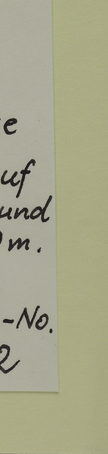 e
uf
und
m.
-No.
2